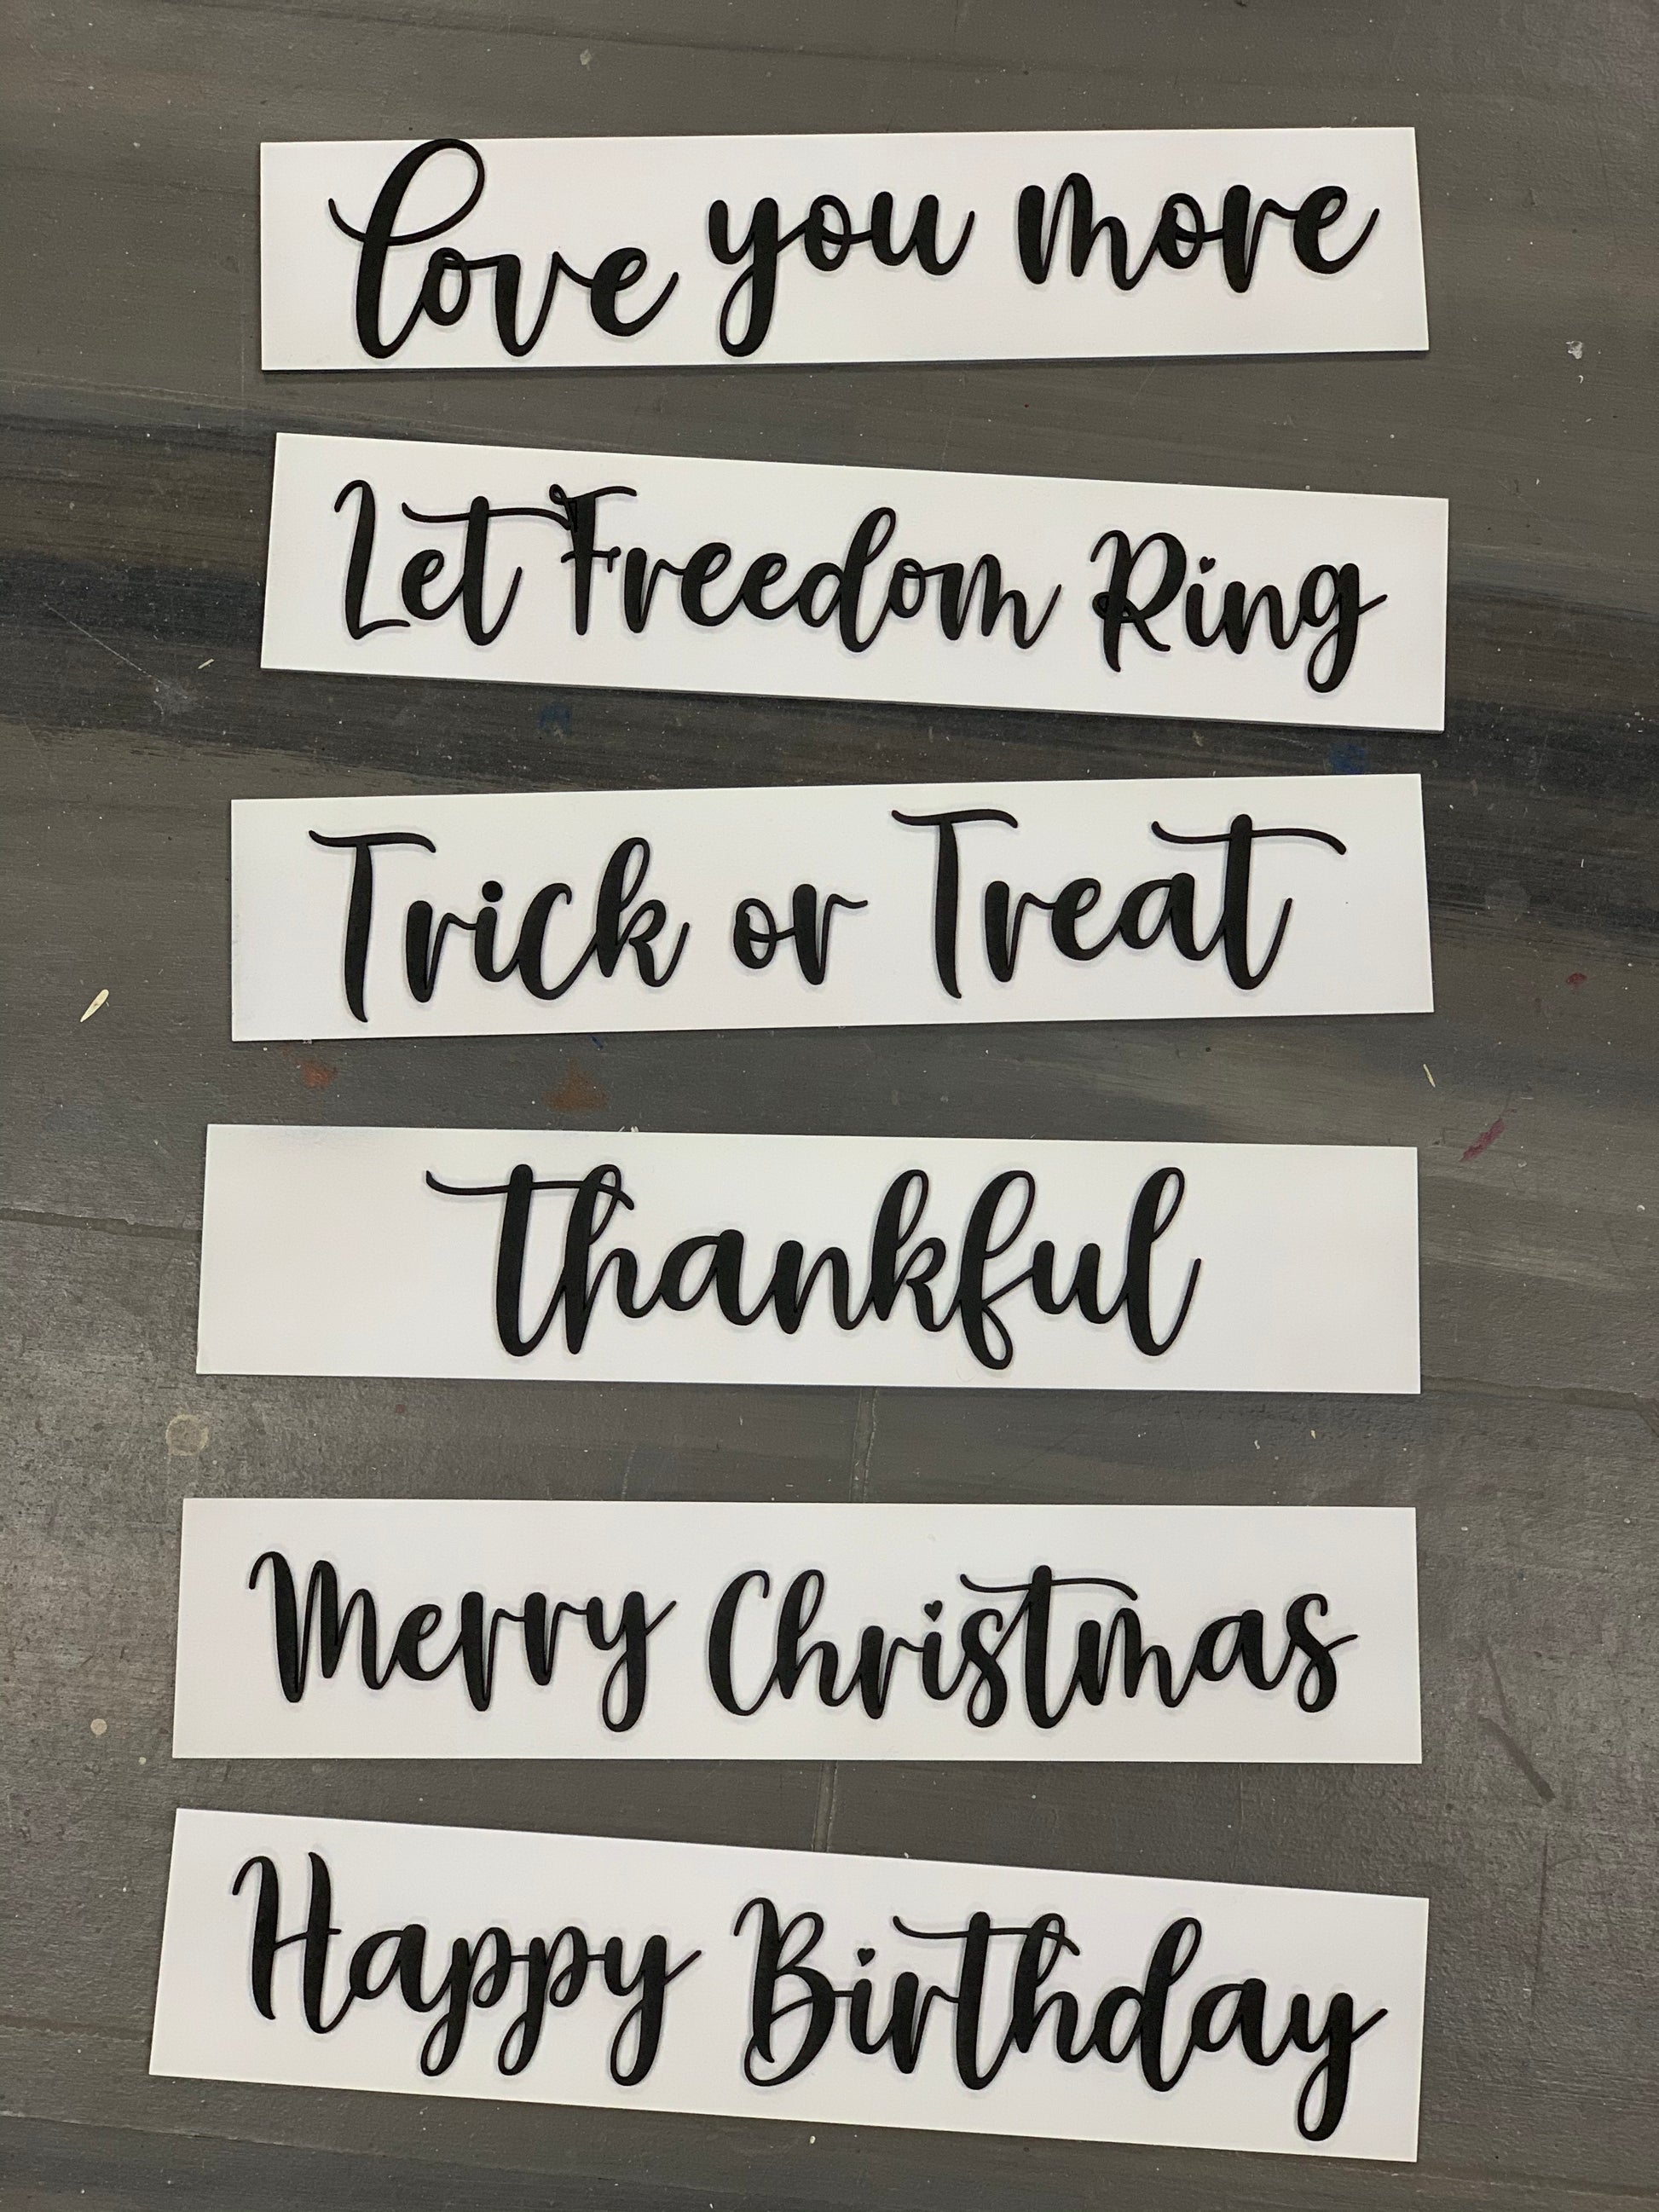 love you more
Let Freedom Ring
Trick or Treat
thankful
Merry Christmas
Happy Birthday